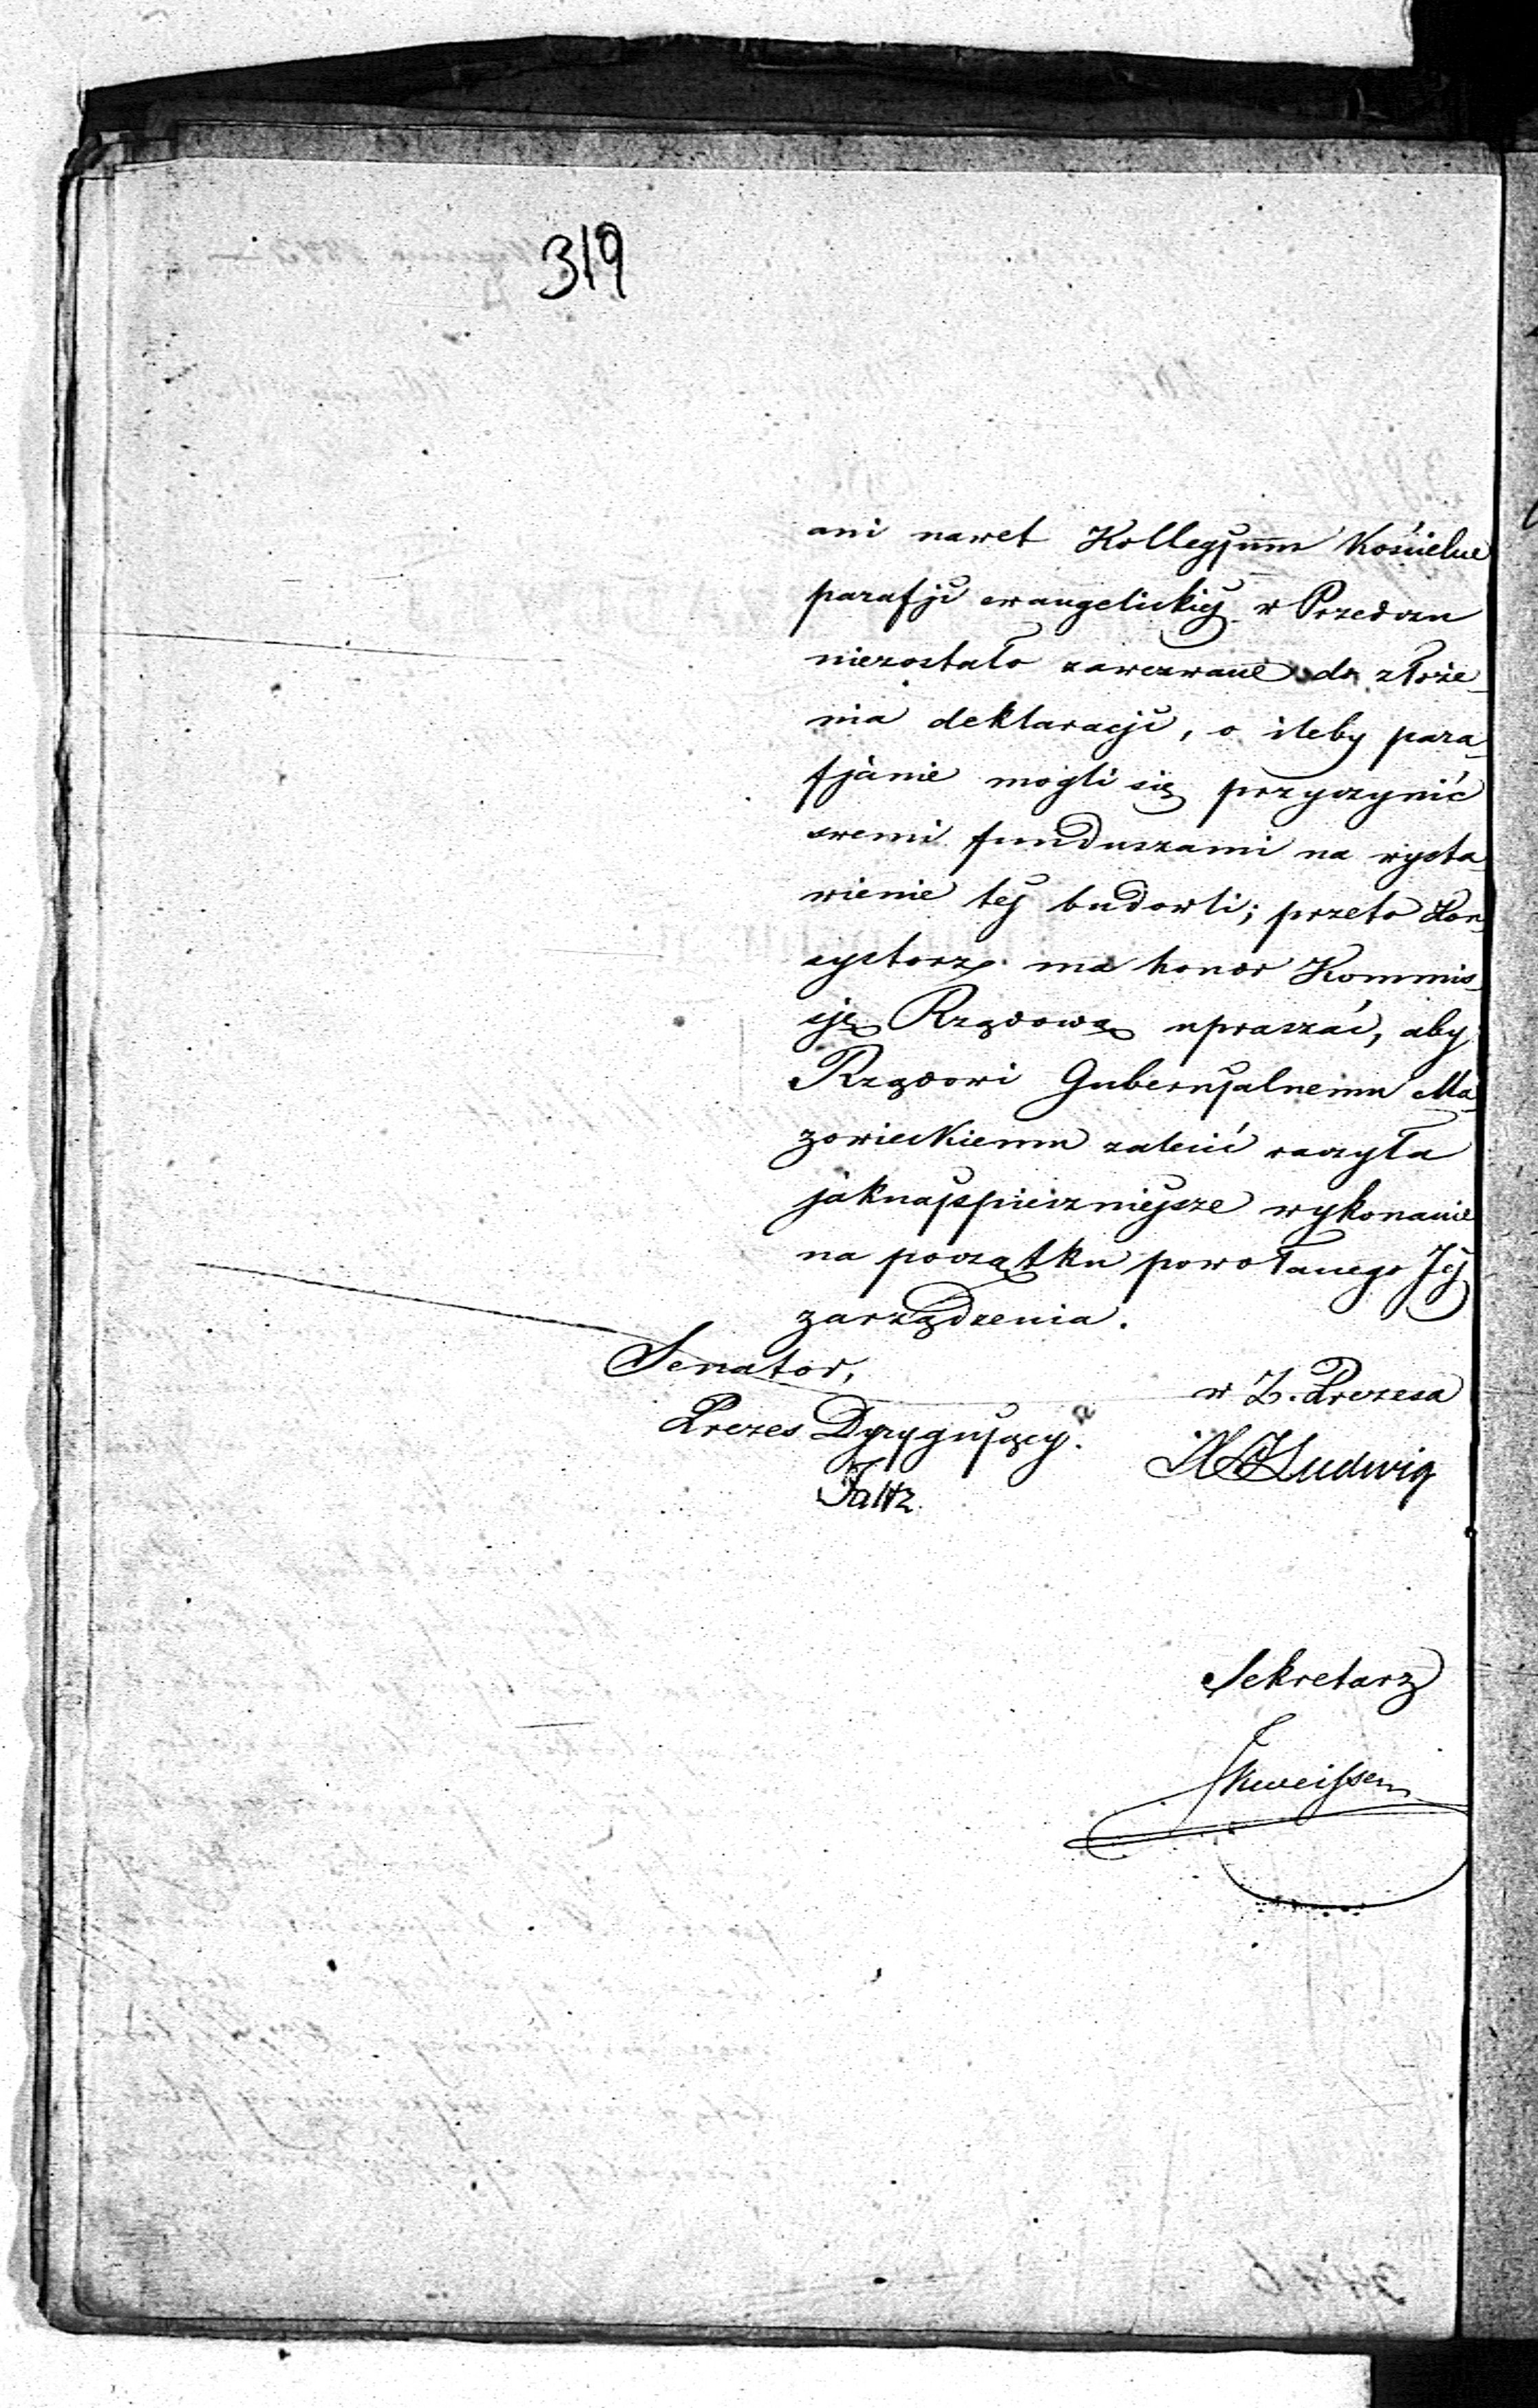 319
ani nawet Kollegjum Kościelne
parafji ewangelickiej w Przedczu
niezostało zawezwane do złoże-
nia deklaracji, o ileby para-
fjanie mogli się przyczynić
swemi funduszami na wysta-
wienie tej budowli; przeto Kon-
systorz ma honor Kommis-
sję Rządową upraszać, aby
Rządowi Gubernjalnemu Ma-
zowieckiemu zalecić raczyła
jaknajspieszniejsze wykonanie
na początku powołanego Jej
zarządzenia.
Senator,
Prezes Dyrygujący.
w Z. Prezesa
Ludwig
Sekretarz